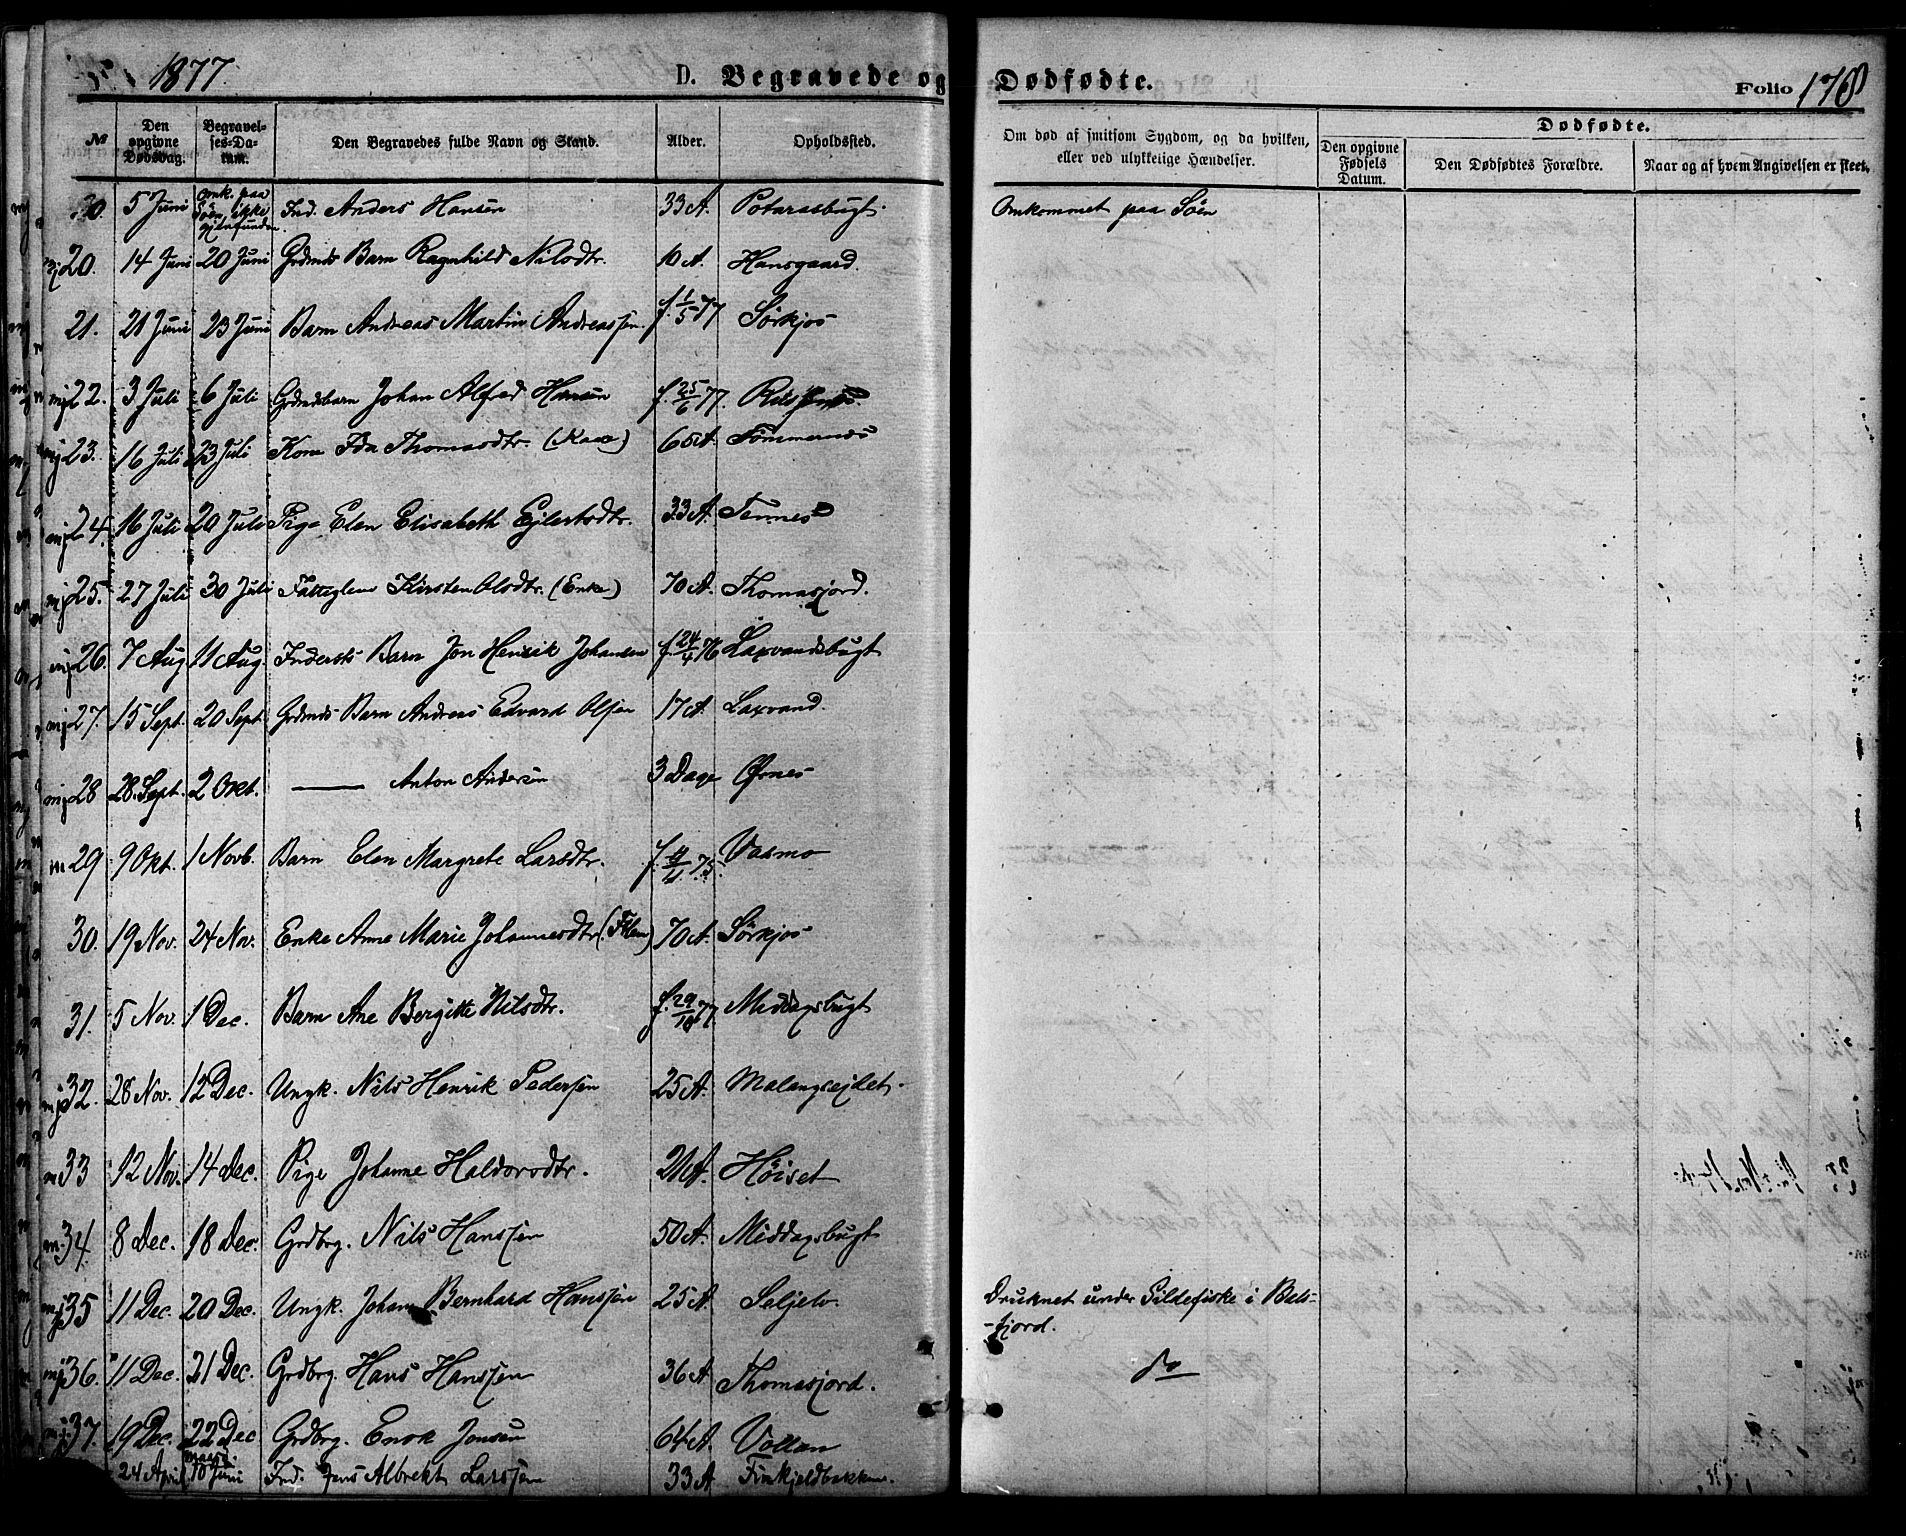 1877.
D. Begravede og Dødfødte.
Folio 178
№ Den opgivne Dødsdag. Begravelses-Datum. Den Begravedes fulde Navn og Stand. Alder. Opholdssted. Om død af smitsom Sygdom, og da hvilken, eller ved ulykkelige Hændelser. Dødfødte. Den opgivne Fødsels Datum. Den Dødfødtes Forældre. Naar og af hvem Angivelsen er skeet.
5 Juni omk. paa Søen ikke gjenfunden. Ind. Anders Hansen 33 A. Omkommet paa Søen
20. 14 Juni 20 Juni Grdmds Barn Ragnhild Nilsdtr. 10 A. Hansgaard.
21. 21 Juni 23 Juni Barn Andreas Martin Andreassen. f. 1/5 77 Sørkjos
22. 3 Juli 6 Juli Grdmdsbarn Johan Alfred Hansen f. 25/6 77.
23. 16 Juli 23 Juli Kone Ida Thomasdtr. 65 A. Tømmernes
24. 16 Juli 20 Juli Pige Elen Elisabeth Ejlertsdtr. 33 A. Tennes
25. 27 Juli 30 Juli Fatteglem Kirsten Olsdtr. (Enke) 70 A. Thomasjord.
26. 7 Aug 11 Aug. Indersts Barn Jon Henrik Johansen f. 24/4 76 Laxvandsbugt
27. 15 Sept. 20 Sept. Grdmds Barn Andreas Edvard Olsen 17 A. Laxvand.
28 28. Sept. 2 Okt. — Anton Andersen 3 Dage Ørnes
29. 9 Okt. 1 Novb. Barn Elen Margrete Larsdtr. Vasmo
30. 19 Nov. 24 Nov. Enke Anne Marie Johannesdtr. (Fttlem) 70 A. Sørkjos
31. 5 Nov. 1 Dec. Barn Ane Bergitte Nilsdtr. f. 29/10 77. Middagsbugt
32. 28 Nov. 12 Dec. Ungk. Nils Henrik Pedersen 25 A. Malangsejdet.
33 12 Nov. 14 Dec. Pige Johanne Haldorsdtr. 21 A. Høiset
34. 8 Dec. 18 Dec. Grdbrg. Nils Hanssen 50 A. Middagsbugt
35 11 Dec. 20 Dec. Ungk. Johan Bernhard Hanssen 25 A. Seljelv. Druknet under Sildefiske i Bals-
-fjord.
36. 11 Dec. 21 Dec. Grdbrg. Hans Hanssen 36 A. Thomasjord. do
37. 19 Dec. 22 Dec Grdbrg. Enok Jonsen 64 A. Vollan
24 April 10 Juni Ind. Jens Albrekt Larssen 33 A.